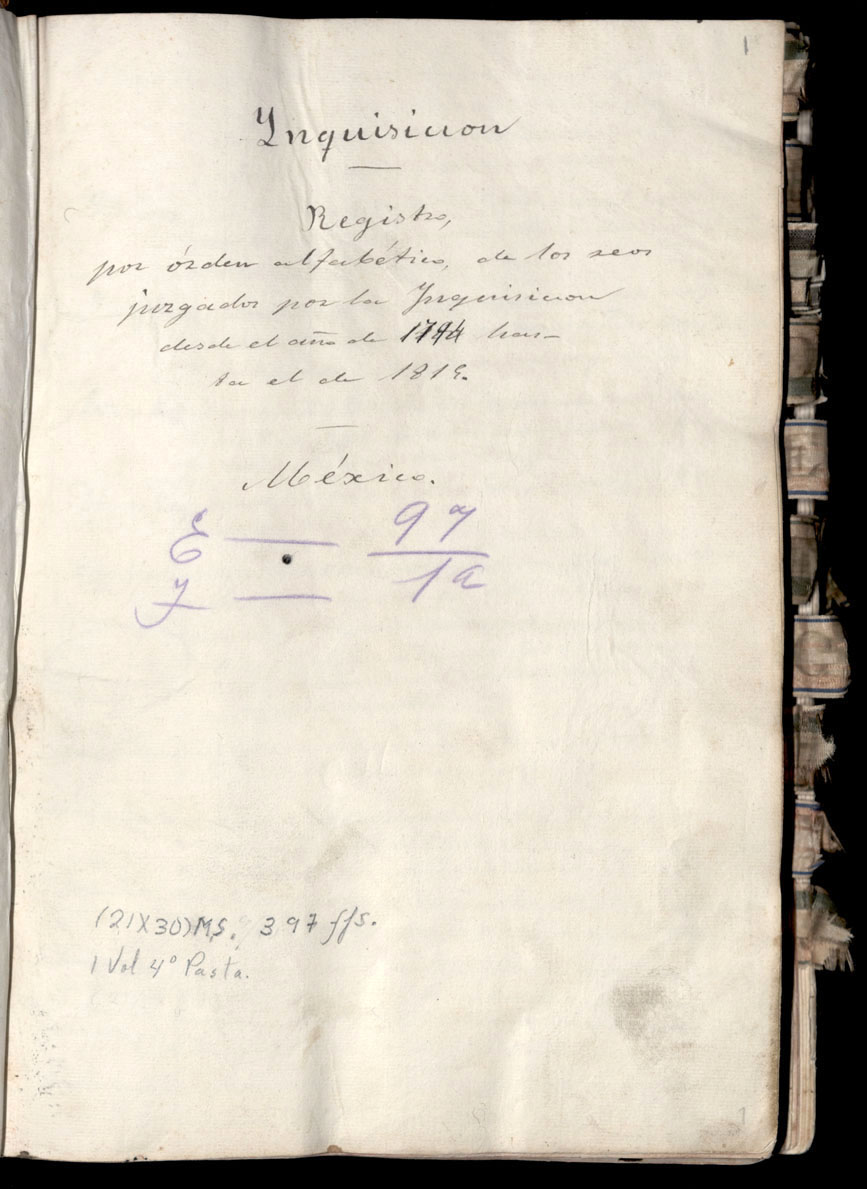 1
Inquisicion
Registro,
por órden alfabético, de los reos
juzgados por la Inquisicion
desde el año de 1744 has-
ta el de 1819.
México.
E — 97
1a
J —
(21X30)MS. 397 ffs.
1 Vol 4º Pasta.
1